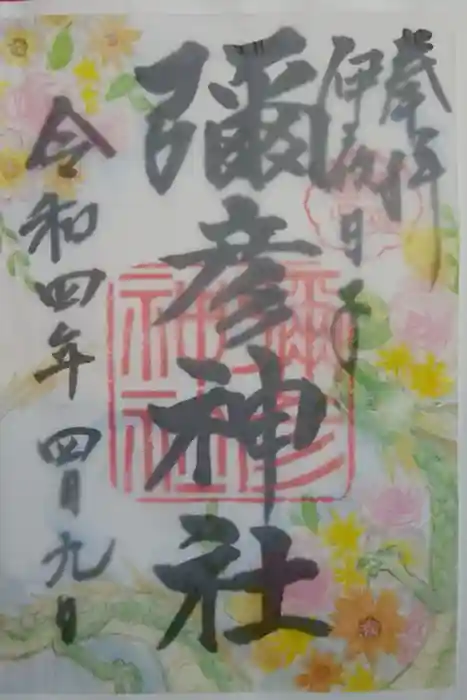 奉拝
伊夜日子
彌彦神社
彌彦神社
令和四年四月九日